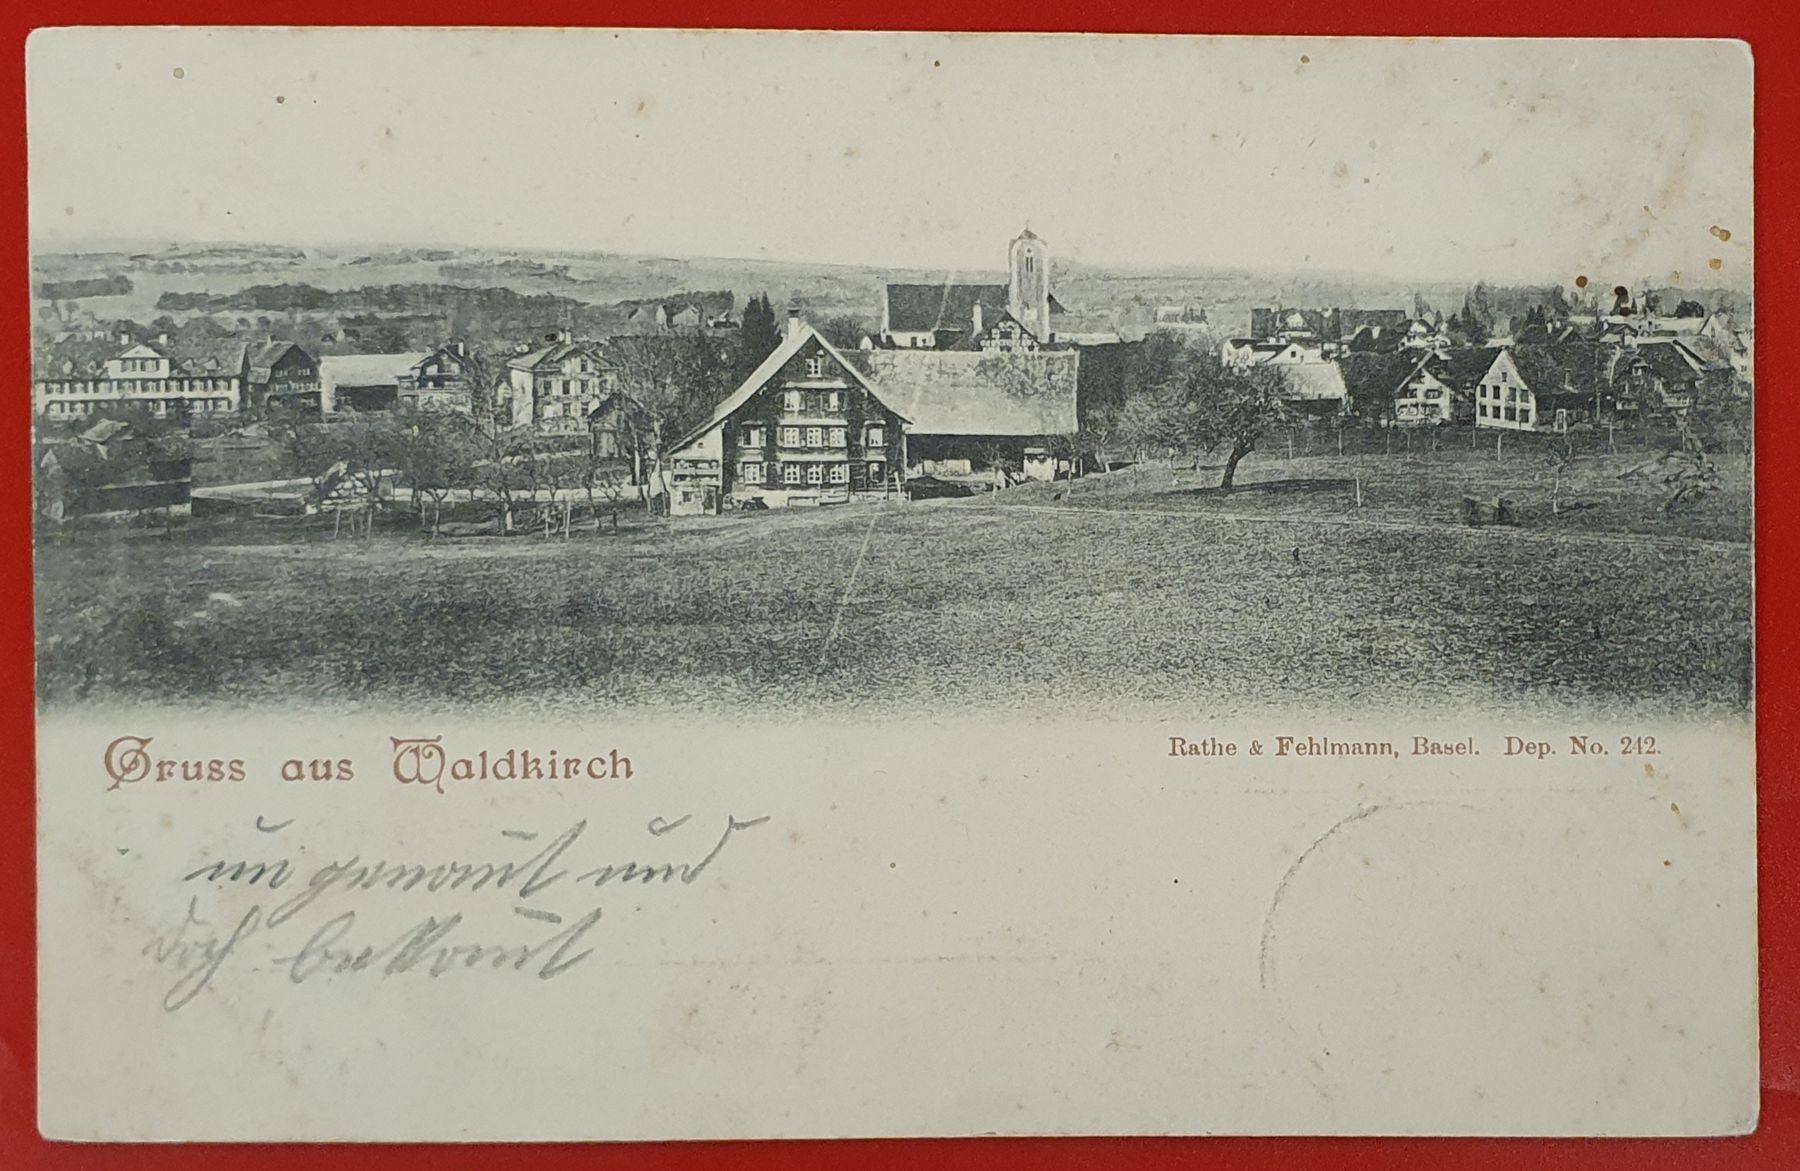 Gruss aus Waldkirch
Rathe & Fehlmann, Basel. Dep. No. 242.
un genant und
doch bekant